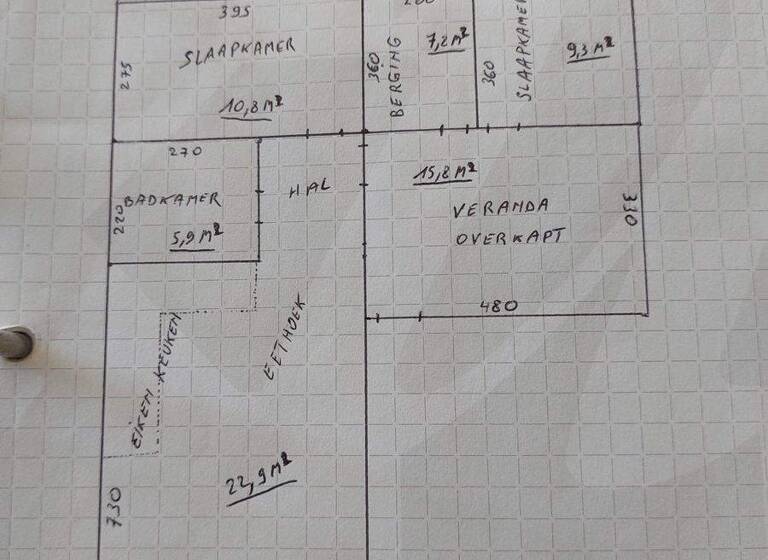 395
SLAAPKAMER
275
10,8 M²
360
BERGING
7,2 M²
360
SLAAPKAMER
9,3 M²
270
BADKAMER
220
5,9 M²
HAL
15,8 M²
VERANDA
OVERKAPT
330
480
EETHOEK
EIKEN KEUKEN
730
22,9 M²